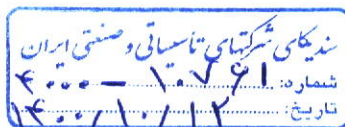 سندیکای شرکتهای تأسیساتی و صنعتی ایران
شماره: ۴۰۰۰ – ۱۰۷۶۱
تاریخ: ۱۴۰۰/۱۰/۱۲